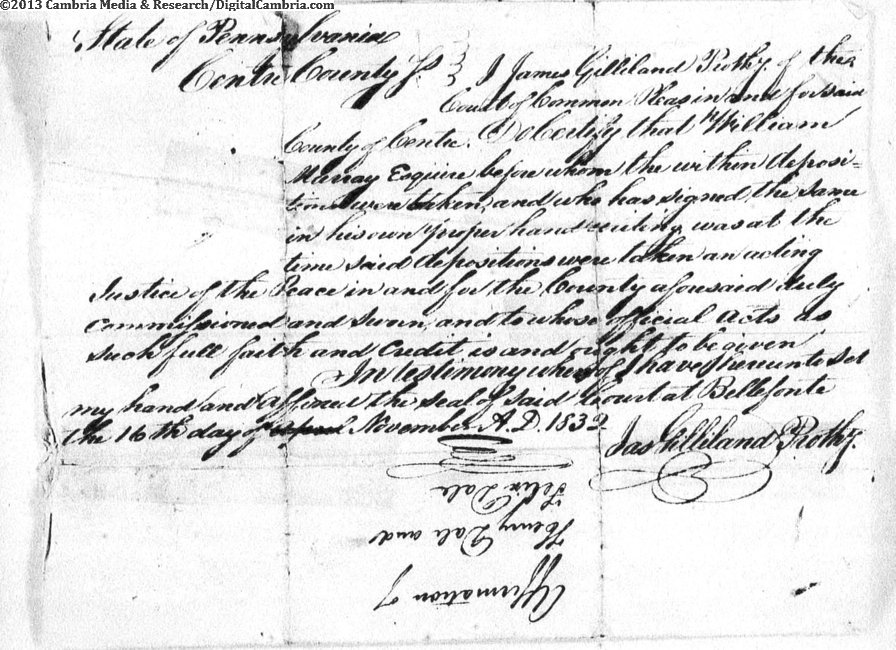 ©2013 Cambria Media & Research/DigitalCambria.com
State of Pennsylvania
Centre County Ss.
I James Gilliland Prothy. of the
Court of Common Pleas in and for said
County of Centre. Do Certify that William
Murray Esquire before whom the within deposi-
tions were taken, and who has signed the same
in his own proper hand writing was at the
time said depositions were taken an acting
Justice of the Peace in and for the County aforesaid duly
commissioned and sworn, and to whose official acts as
such full faith and credit is and ought to be given
In testimony whereof I have hereunto set
my hand and affixed the seal of said Court at Bellefonte
the 16th day of November A.D. 1832
Jas Gilliland Prothy.
Affirmation of
Henry Dale and
Felix Dale